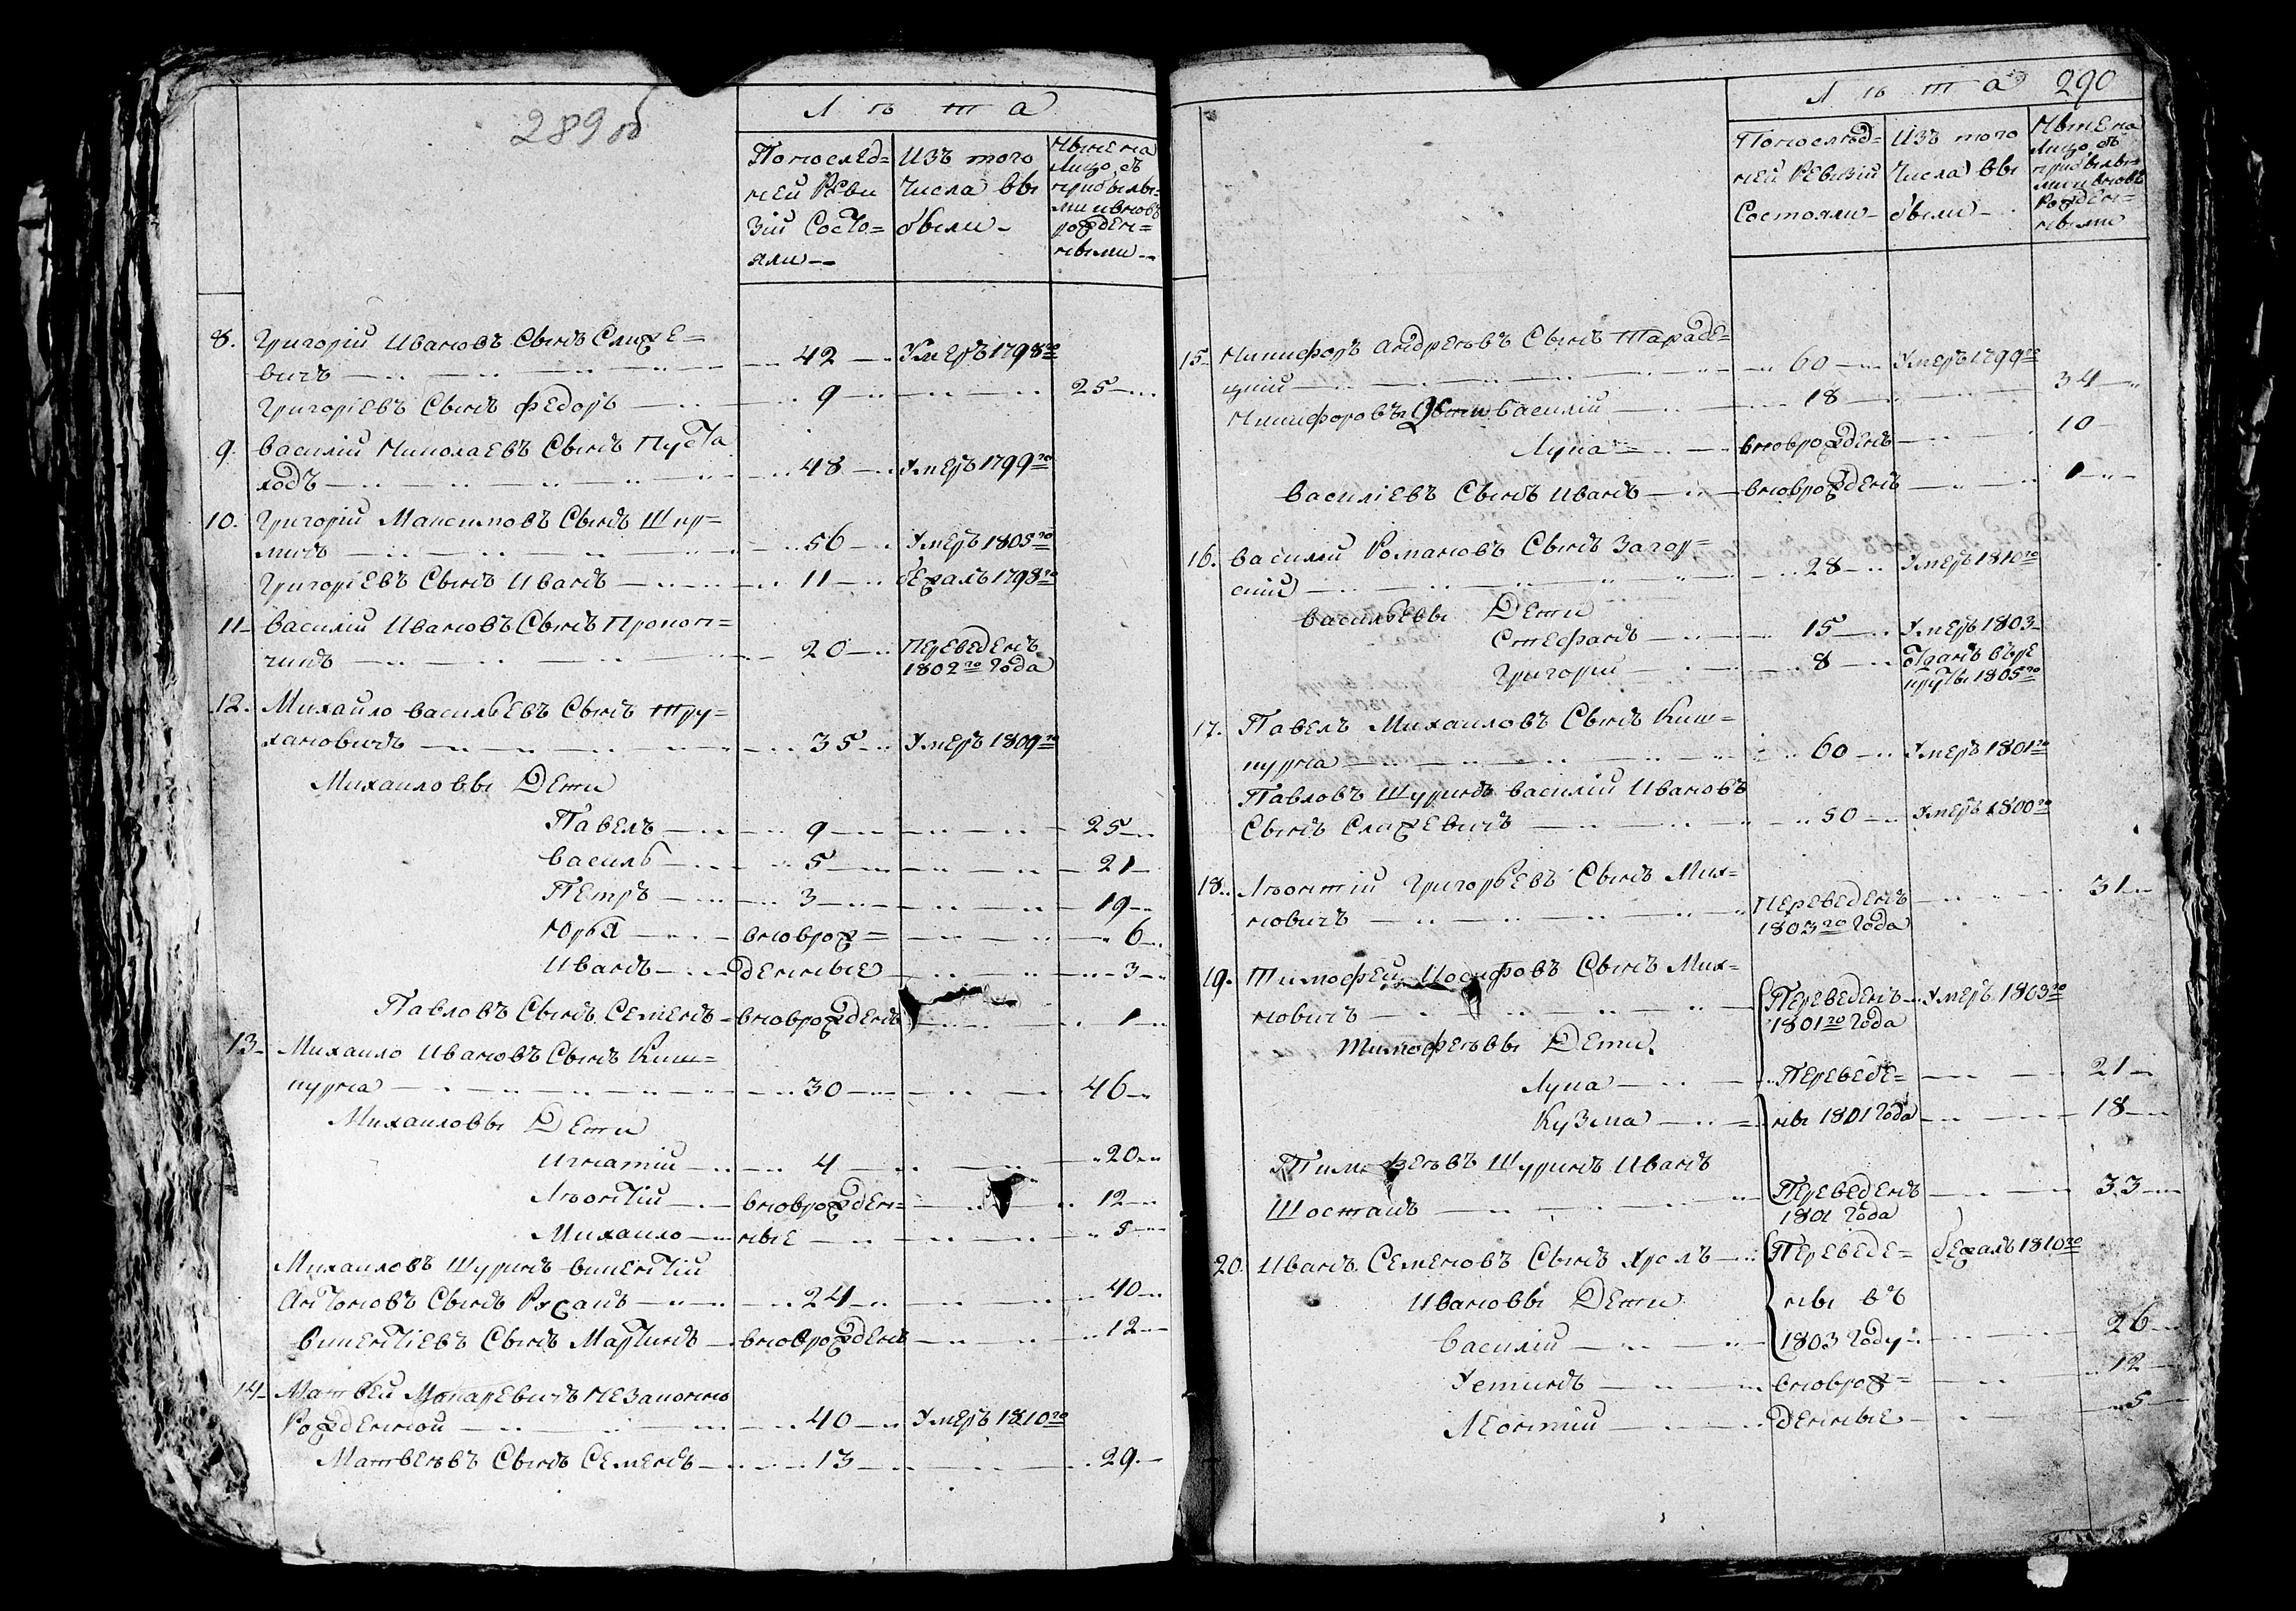 289 об
Лѣта
По послед=
ней Реви
зіи Состо=
яли
Изъ того
Числа вы
были
Ныне на
Лицо съ
прибылы=
ми и вновь
рожден=
ными
8. Григорій Ивановъ Сынъ Слиже=
вичъ 42 Умеръ 1798го
Григоріевъ Сынъ Федоръ 9 25
9. Василій Николаевъ Сынъ Пуста
ходъ 48 Умеръ 1799го
10. Григорій Максимовъ Сынъ
56 Умеръ 1805го
Григоріевъ Сынъ Иванъ 11 бежалъ 1798го
11. Василій Ивановъ Сынъ Прокоп=
чикъ 20 Переведенъ
1802го Года
12. Михайло Васильевъ Сынъ Тру=
хановичъ 35 Умеръ 1809го
Михайловы Дети
Павелъ 9 25
Василь 5 21
Петръ 3 19
Юрья вноврож= 6
Иванъ денные 3
Павловъ Сынъ Семенъ вноврожденъ 1
13. Михайло Ивановъ Сынъ Киш=
курна 30 46
Михайловы Дети
Игнатій 4 20
Лѣонтій вноврожден= 12
Михайло ные 5
Михайловъ Шуринъ Викентій
Антоновъ Сынъ 24 40
Викентіевъ Сынъ Мартинъ вноврожденъ 12
14. Матвей Макаревичъ незаконно
Рожденной 40 Умеръ 1810го
Матвеѣвъ Сынъ Семенъ 13 29
290
Лѣта
По послѣд=
ней Ревизіи
Состояли
Изъ того
Числа вы
были
Ныне на
Лицо съ
прибылы=
ми и вновь
Рожден=
ными
15. Никифоръ Андреѣвъ Сынъ Тараде=
цкій 60 Умеръ 1799го
Никифоровъ Василій 18 34
Лука вноврожденъ 10
Василіевъ Сынъ Иванъ вноврожденъ 1
16. Василій Романовъ Сынъ Загор=
скій 28 Умеръ 1810го
Васильевы Дети
Стефанъ 15 Умеръ 1803
Григорій 8 Отданъ въ ре
круты 1805го
17. Павелъ Михайловъ Сынъ Киш=
курна 60 Умеръ 1801го
Павловъ Шуринъ Василій Ивановъ
Сынъ Слижевичъ 50 Умеръ 1800го
18. Лѣонтій Григорьевъ Сынъ Мих=
новичъ Переведенъ 31
1803го Года
19. Тимофей Иосифовъ Сынъ Мих=
новичъ Переведенъ Умеръ 1803го
1801го Года
Тимофеѣвы Дети
Лука Переведе= 21
Кузма ны 1801 Года 18
Тимофеѣвъ Шуринъ Иванъ
Шостакъ Переведенъ 33
1801 Года
20. Иванъ Семеновъ Сынъ Хролъ Переведе= бежалъ 1810го
Ивановы Дети ны въ
Василій 1803 Году 26
Устинъ вноврож= 12
Леонтій денные 5